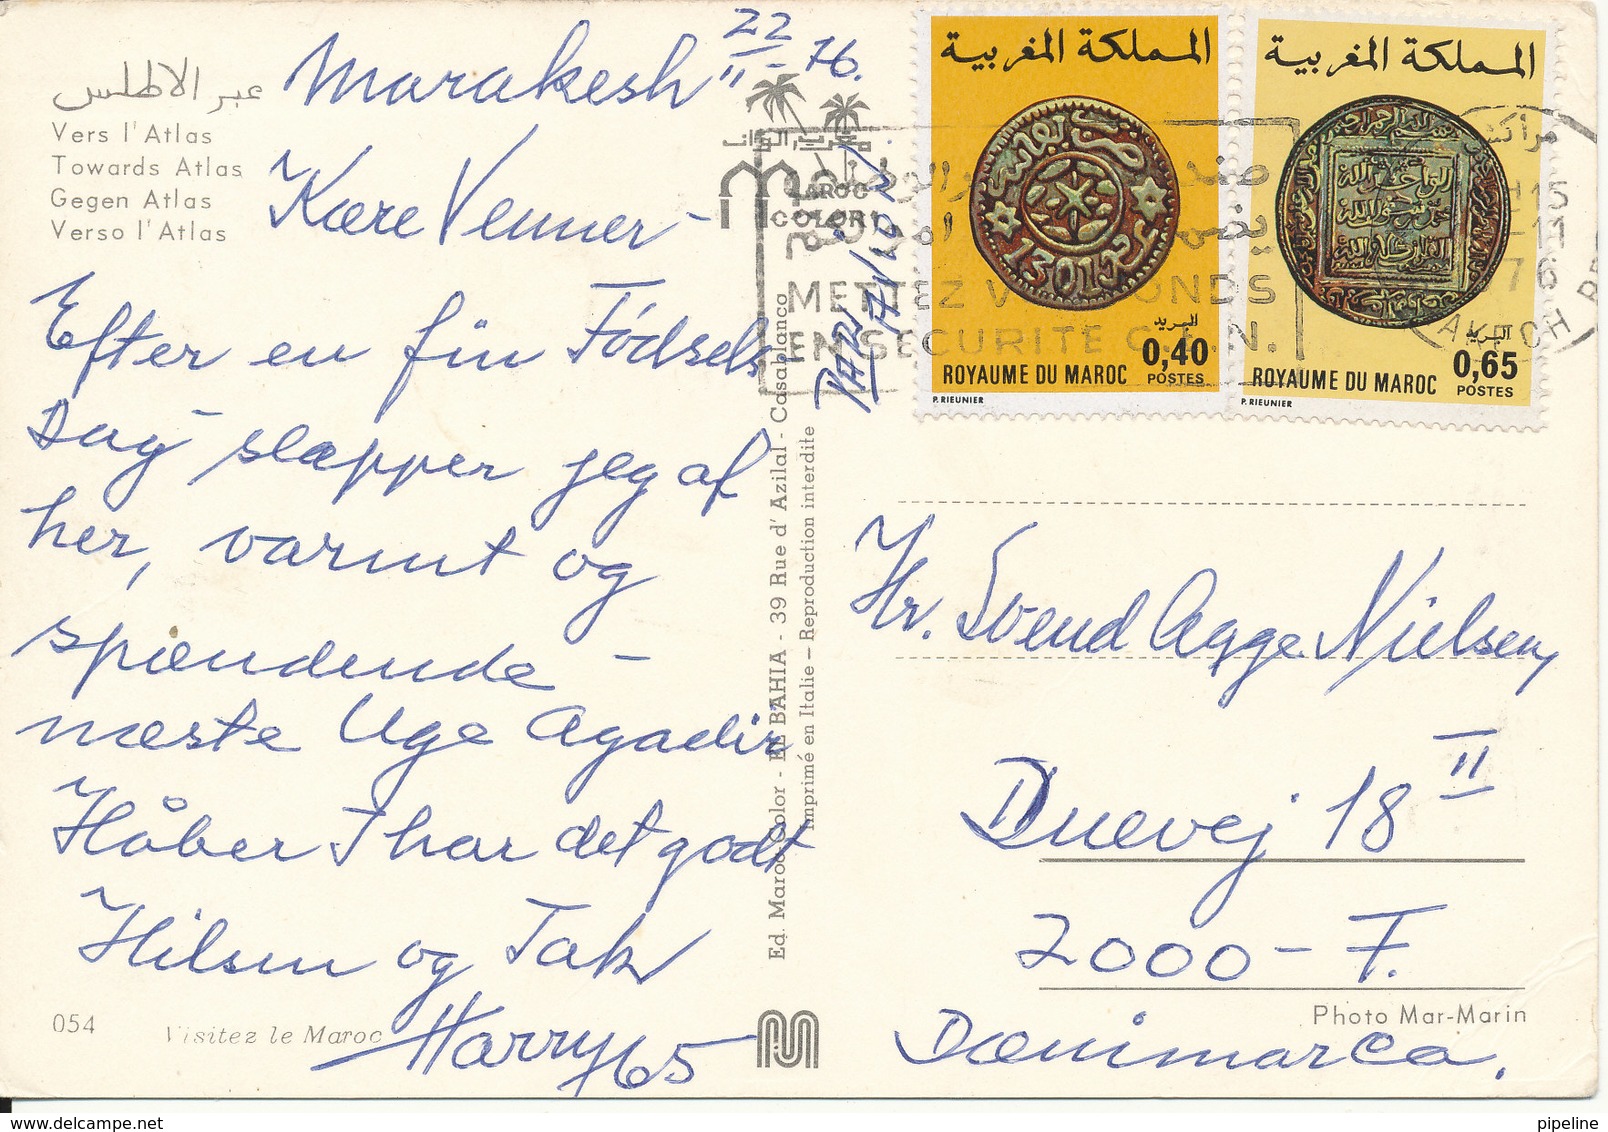 عبر الاطلس
Vers l'Atlas
Towards Atlas
Gegen Atlas
Verso l'Atlas
Marakesh 22/11-76.
Kære Venner-
Efter en fin Fødsels-
Dag slapper jeg af
her, varmt og
spændende -
næste Uge Agadir
Håber I har det godt
Hilsen og Tak
Harry 65
054
Visitez le Maroc
MAROC
COLOR
Ed. Maroc Color - EL BAHIA - 39 Rue d'Azilal - Casablanca
Imprimé en Italie - Reproduction interdite
PAR AVION
المملكة المغربية
البريد
0,40
ROYAUME DU MAROC POSTES
P. RIEUNIER
المملكة المغربية
البريد
0,65
ROYAUME DU MAROC POSTES
P. RIEUNIER
METTEZ V FONDS
EN SECURITE C.E.N.
مراكش
H15
-11
76
Hr. Svend Agge Nielsen,
Duevej 18 II
2000-F.
Danimarca.
Photo Mar-Marin
pipeline